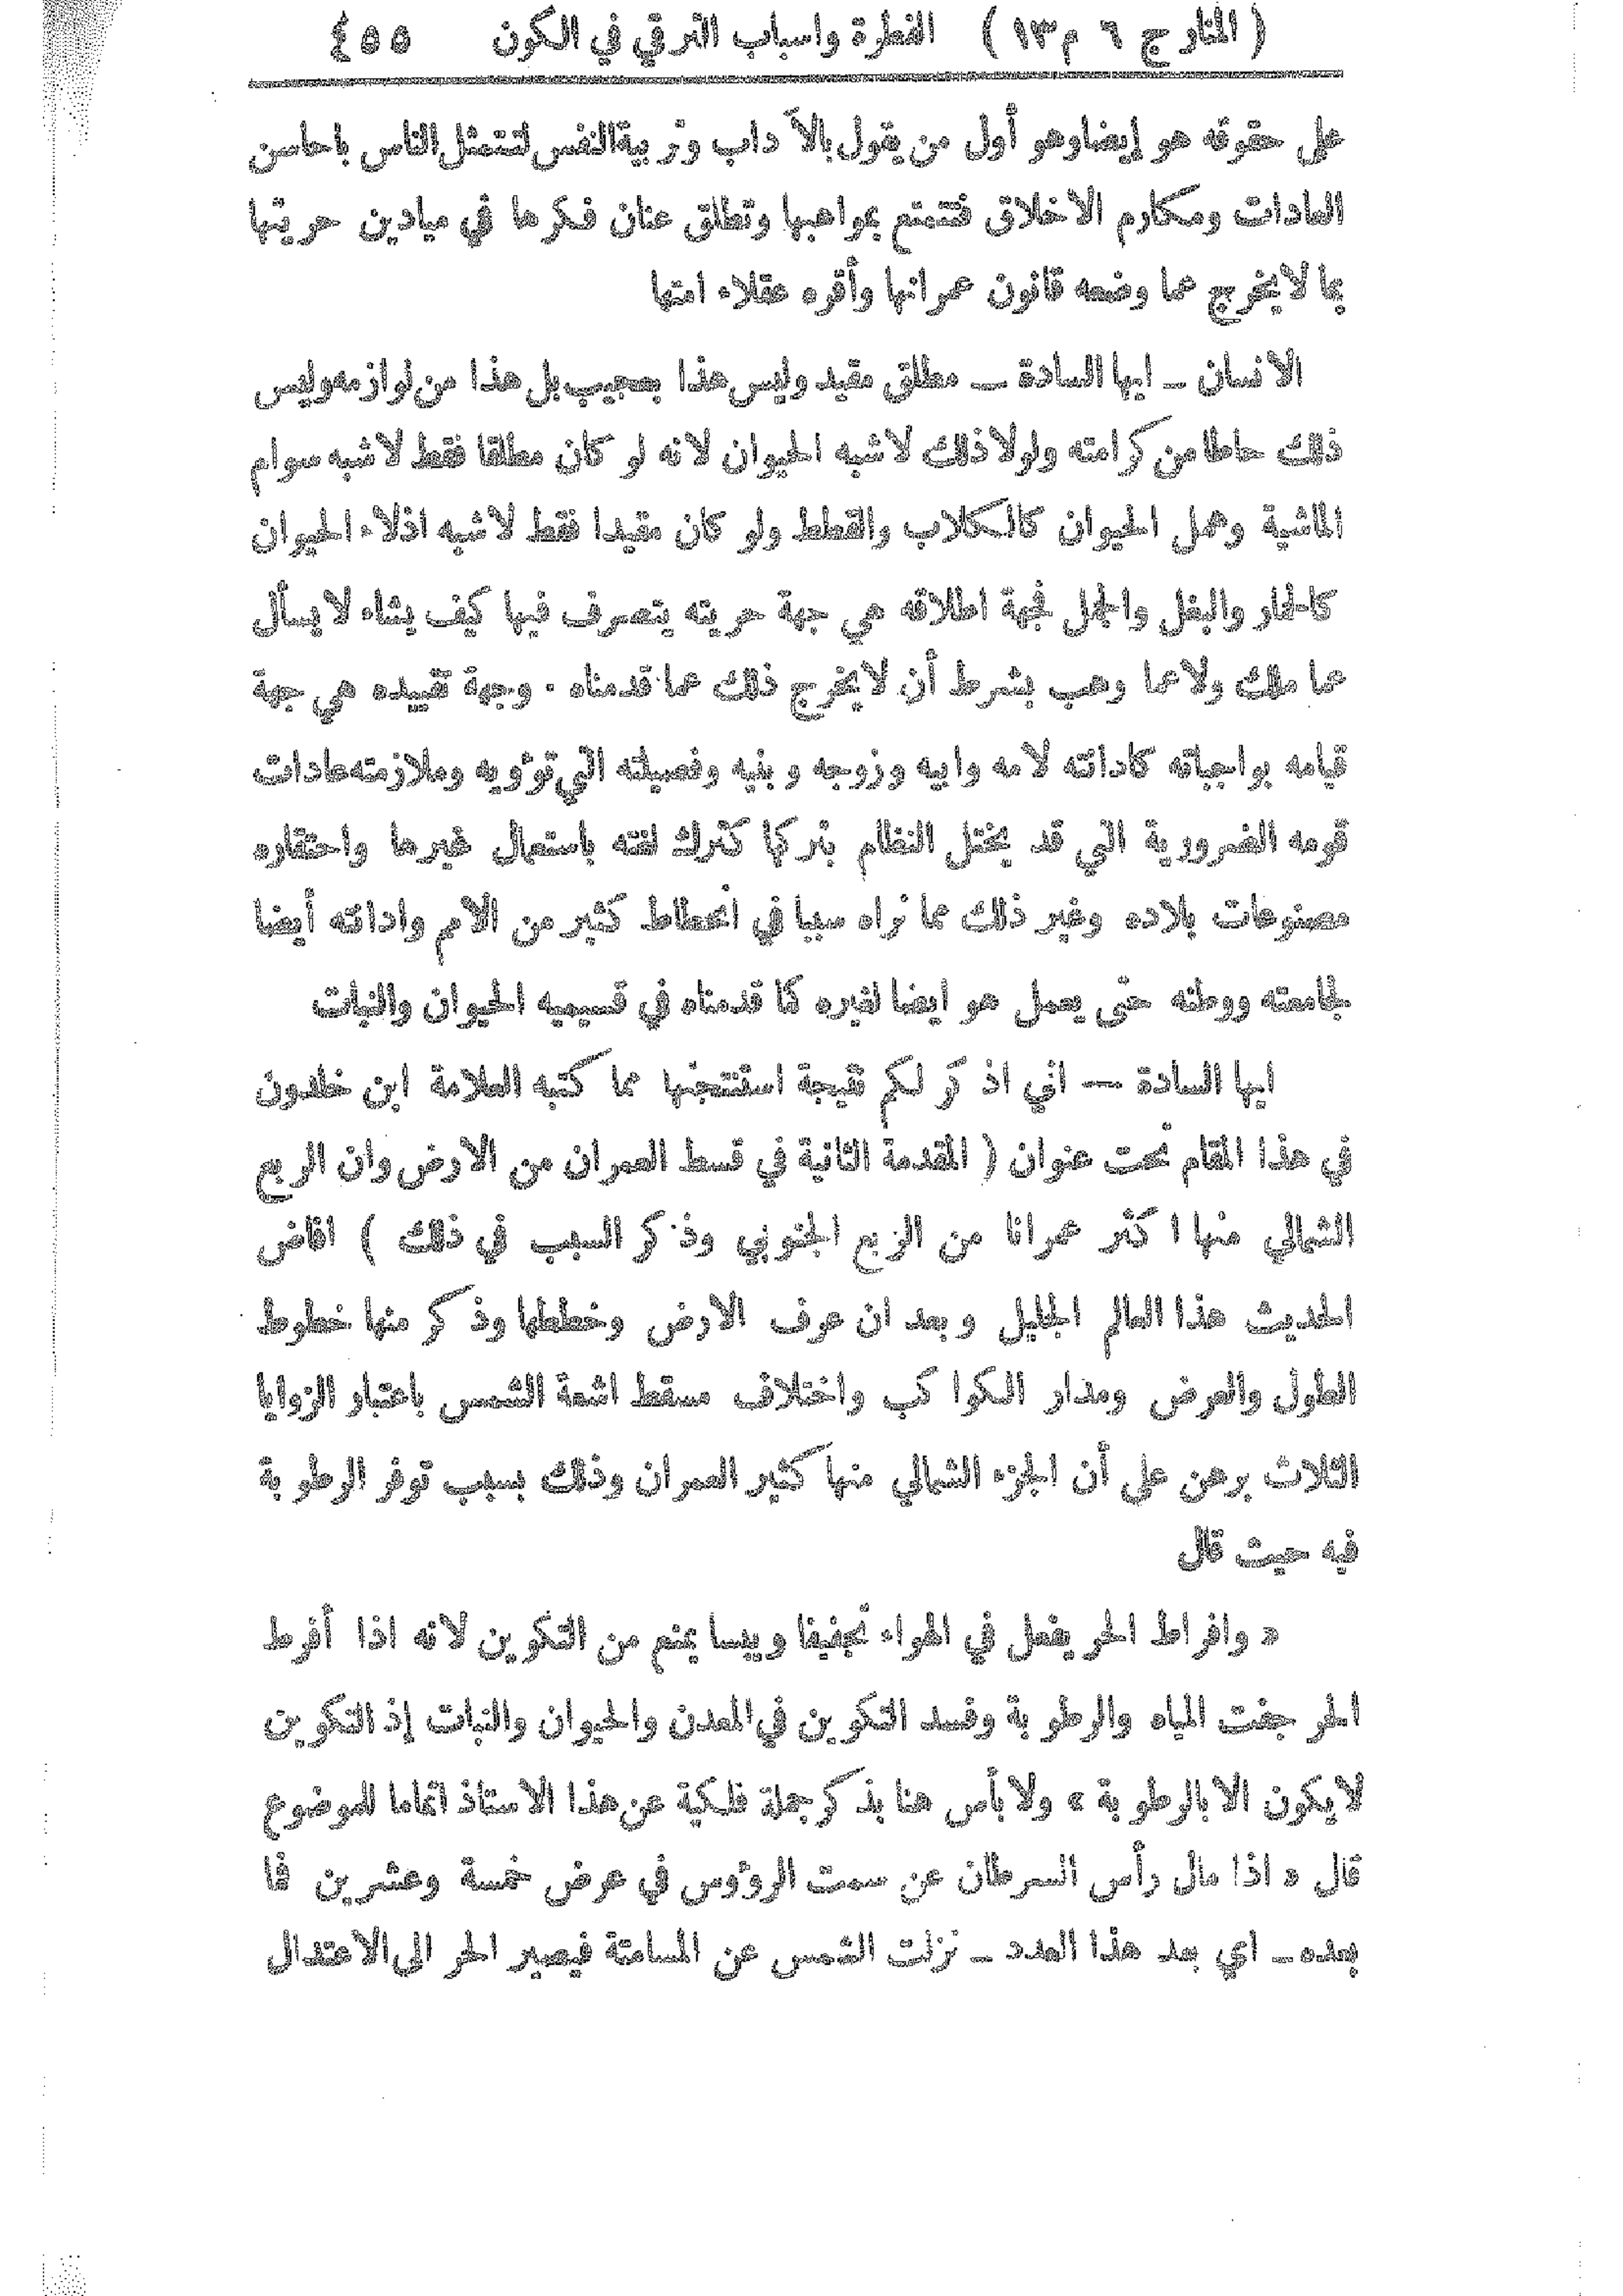 ( المنار ج ٦ م ١٣ ) الفطرة واسباب الترقي في الكون ٤٥٥
على حقوقه هو إيضا وهو أول من يقول بالآداب وتربية النفس لتتمثل الناس باحاسن
العادات ومكارم الاخلاق فتتمتع بمواهبها وتطلق عنان فكرها في ميادين حريتها
بما لا يخرج عما وضعه قانون عمرانها وأقره عقلاء امتها
الانسان ــ ايها السادة ــ مطلق مقيد وليس هذا بعجيب بل هذا من لوازمه وليس
ذلك حاطا من كرامته ولولا ذلك لاشبه الحيوان لانه لو كان مطلقا فقط لاشبه سوام
الماشية وهمل الحيوان كالكلاب والقطط ولو كان مقيدا فقط لاشبه اذلاء الحيوان
كالحمار والبغل والجمل فجهة اطلاقه هي جهة حريته يتصرف فيها كيف يشاء لا يسأل
عما ملك ولا عما وهب بشرط أن لا يخرج ذلك عما قدمناه . وجهة تقييده هي جهة
قيامه بواجباته كاداته لامه وابيه وزوجه وبنيه وفصيلته التي تؤويه وملازمته عادات
قومه الضرورية التي قد يختل النظام بتركها كترك لغته باستعمال غيرها واحتقاره
مصنوعات بلاده وغير ذلك مما نراه سببا في انحطاط كثير من الامم واداته أيضا
لجامعته ووطنه حتى يعمل هو ايضا لغيره كما قدمناه في قسيميه الحيوان والنبات
ايها السادة ــ اني اذكر لكم نتيجة استنتجتها مما كتبه العلامة ابن خلدون
في هذا المقام تحت عنوان ( المقدمة الثانية في قسط العمران من الارض وان الربع
الشمالي منها اكثر عمرانا من الربع الجنوبي وذكر السبب في ذلك ) افاض
الحديث هذا العالم الجليل وبعد ان عرف الارض وخططها وذكر منها خطوط
الطول والعرض ومدار الكواكب واختلاف مسقط اشعة الشمس باعتبار الزوايا
الثلاث برهن على أن الجزء الشمالي منها كثير العمران وذلك بسبب توفر الرطوبة
فيه حيث قال
« وافراط الحر يفعل في الهواء تجفيفا ويبسا يمنع من التكوين لانه اذا أفرط
الحر جفت المياه والرطوبة وفسد التكوين في المعدن والحيوان والنبات إذ التكوين
لا يكون الا بالرطوبة » ولا بأس هنا بذكر جملة فلكية عن هذا الاستاذ اتماما للموضوع
قال « اذا مال رأس السرطان عن سمت الرؤوس في عرض خمسة وعشرين فما
بعده ــ اي بعد هذا العدد ــ نزلت الشمس عن المسامتة فيصير الحر الى الاعتدال